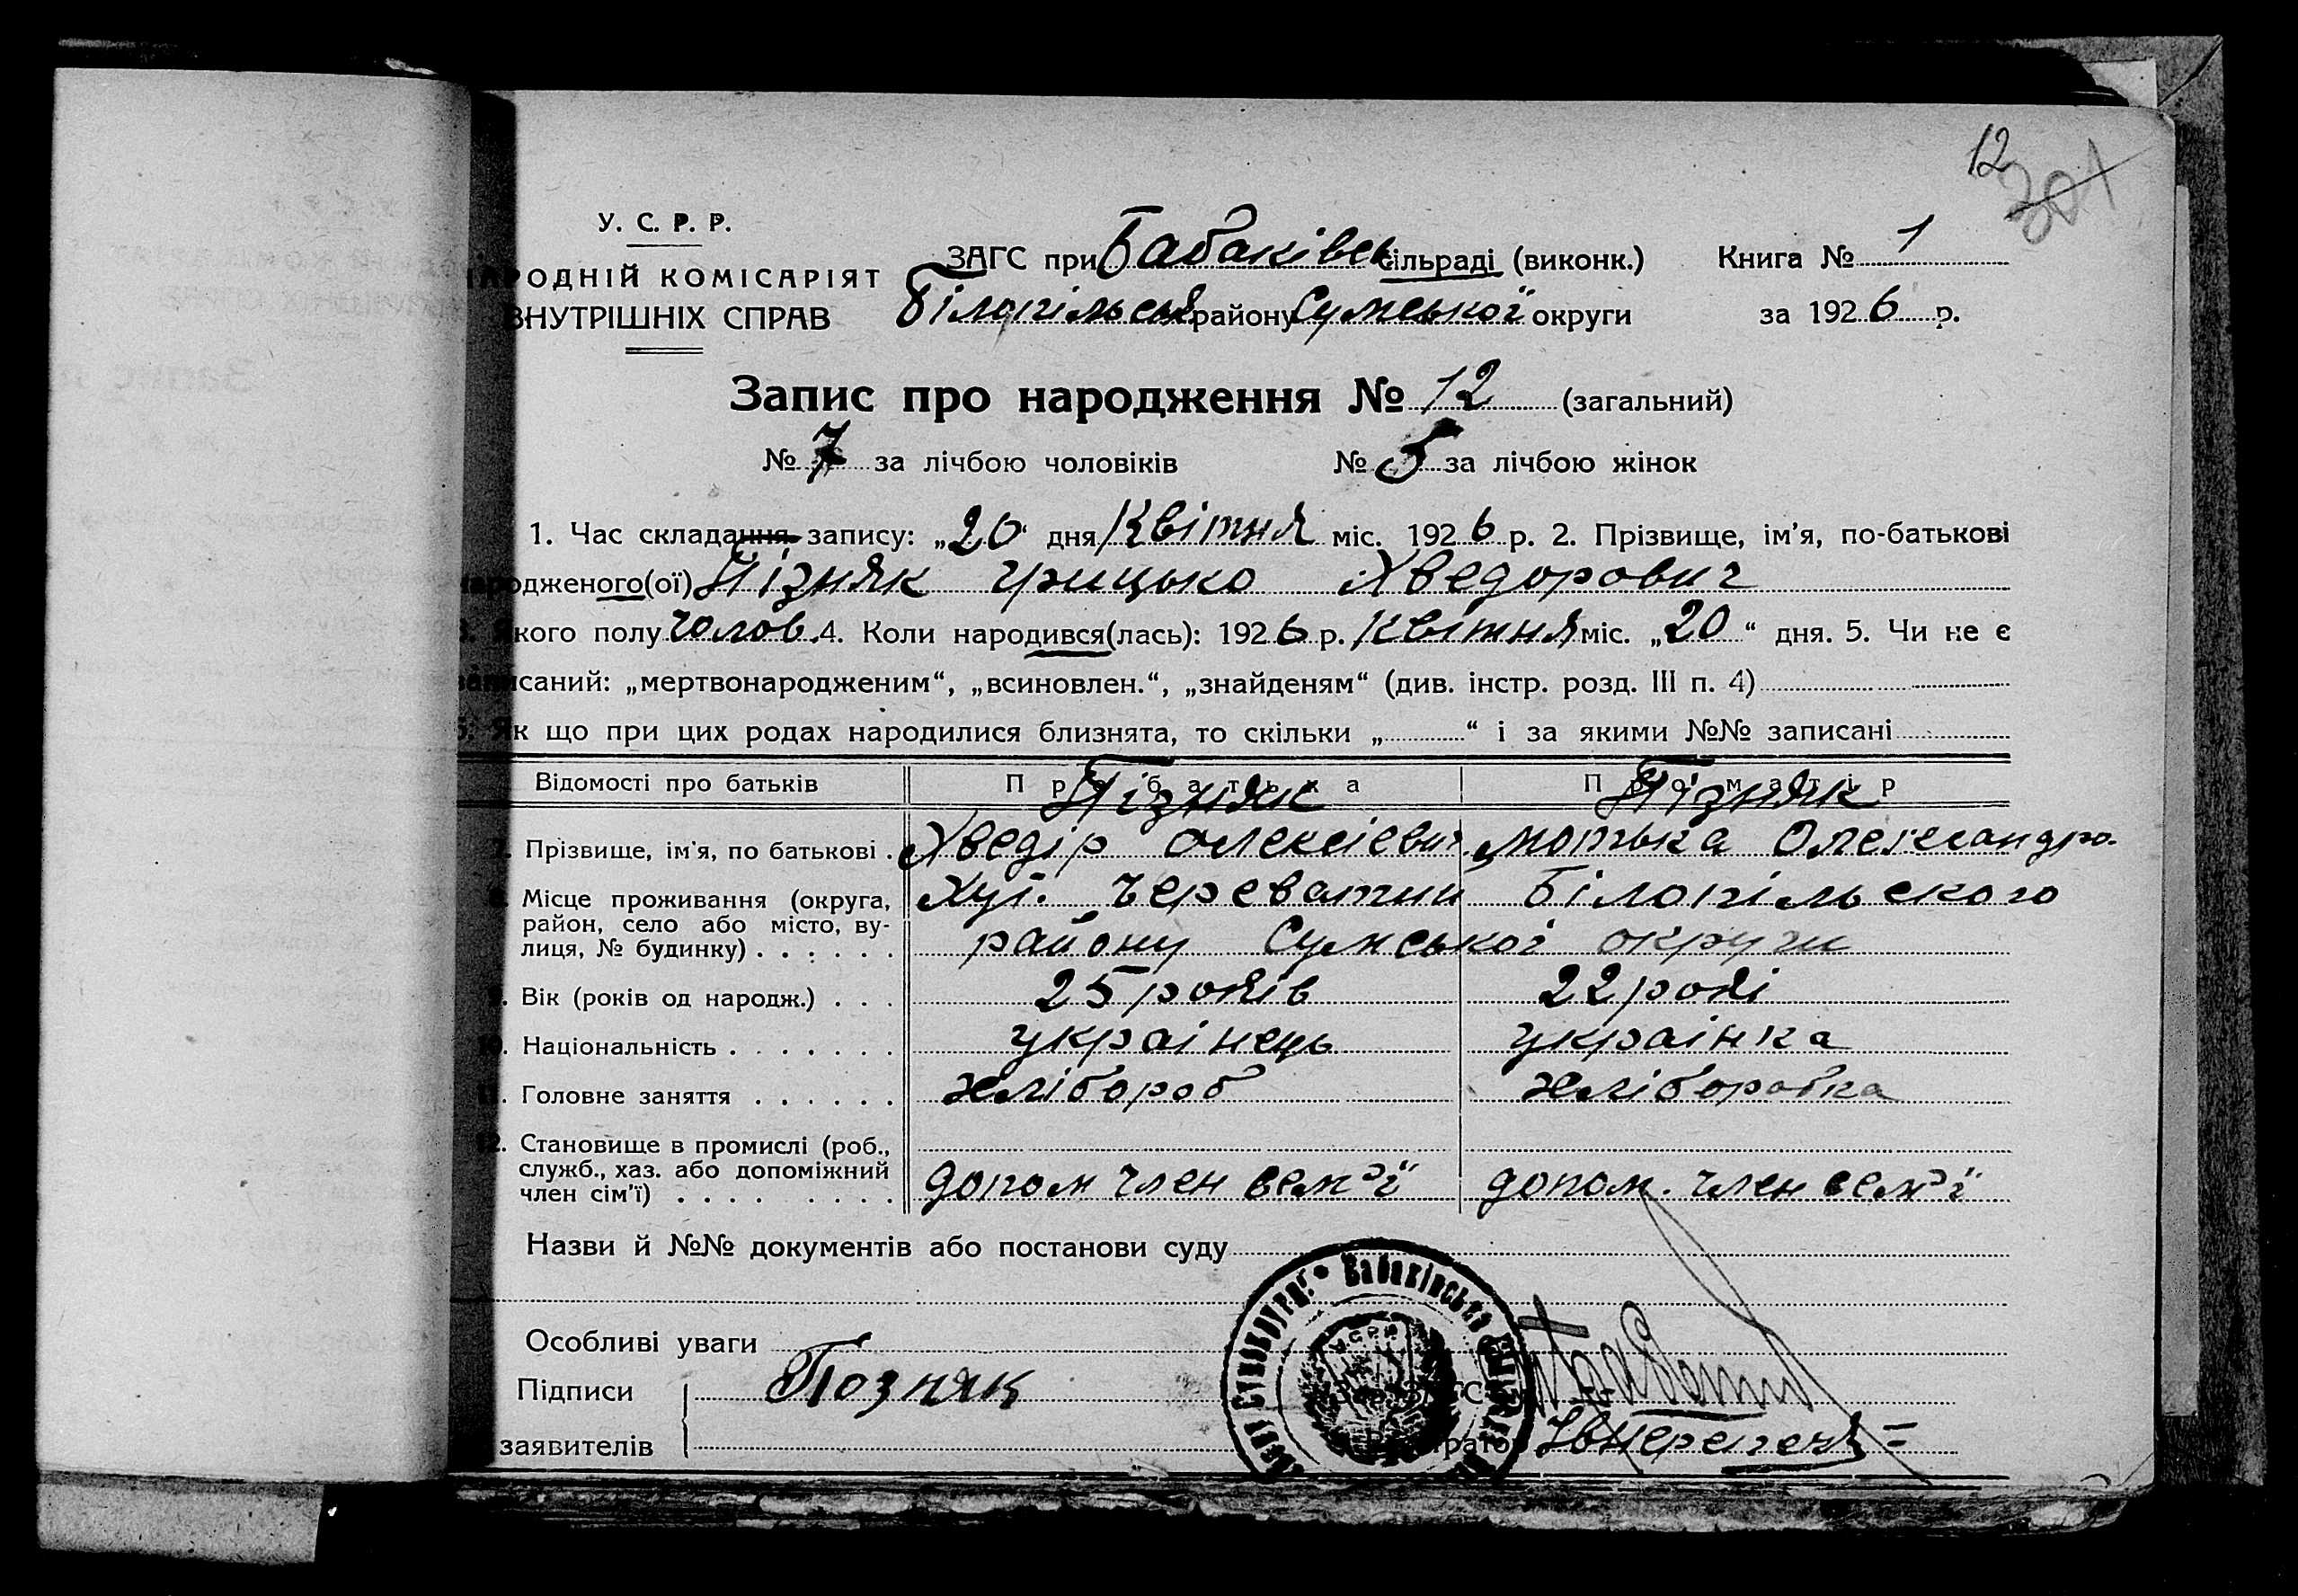 12
301
У. С. Р. Р.
НАРОДНІЙ КОМІСАРІЯТ
ВНУТРІШНІХ СПРАВ
ЗАГС при Бабаківсь сільраді (виконк.) Книга № 1
Білопільськ району Сумської округи за 1926 р.
Запис про народження № 12 (загальний)
№ 7 за лічбою чоловіків № 5 за лічбою жінок
1. Час складання запису: „20 дня Квітня міс. 1926 р. 2. Прізвище, ім'я, по-батькові
народженого(ої) Пізняк Грицько Хведорович
3. Якого полу чолов. 4. Коли народився(лась): 1926 р. Квітня міс. „20“ дня. 5. Чи не є
записаний: „мертвонародженим“, „всиновлен.“, „знайденям“ (див. інстр. розд. III п. 4)
6. Як що при цих родах народилися близнята, то скільки „ “ і за якими №№ записані
Відомості про батьків Про батька Про матір
Пізняк Пізняк
7. Прізвище, ім'я, по батькові . Хведір Олексієвич Мотька Олександро.
8. Місце проживання (округа, Хут. Череватий Білопільского
район, село або місто, ву-
лиця, № будинку) . . . . . . району Сумської округи
9. Вік (років од народж.) . . . 25 років 22 рокі
10. Національність . . . . . . . українець українка
11. Головне заняття . . . . . . хлібороб хліборобка
12. Становище в промислі (роб.,
служб., хаз. або допоміжний
член сім'ї) . . . . . . . . . допом член сем'ї допом. член сем'ї
Назви й №№ документів або постанови суду
Бабаківська
УСРР
Особливі уваги
Підписи Позняк
заявителів